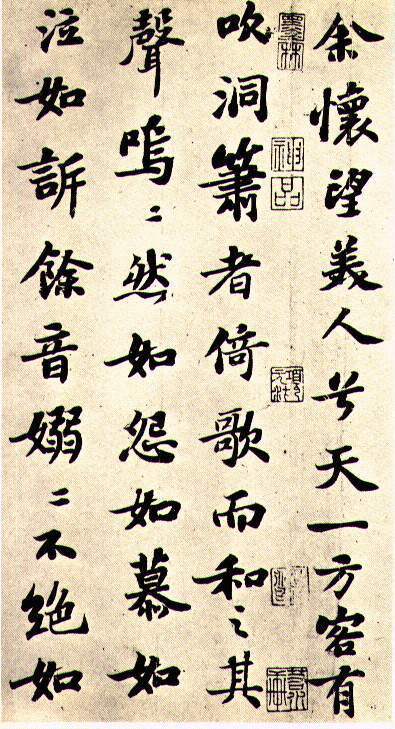 余懷望美人兮天一方客有
吹洞簫者倚歌而和之其
聲嗚〻然如怨如慕如
泣如訴餘音嫋〻不絶如
墨林
神品